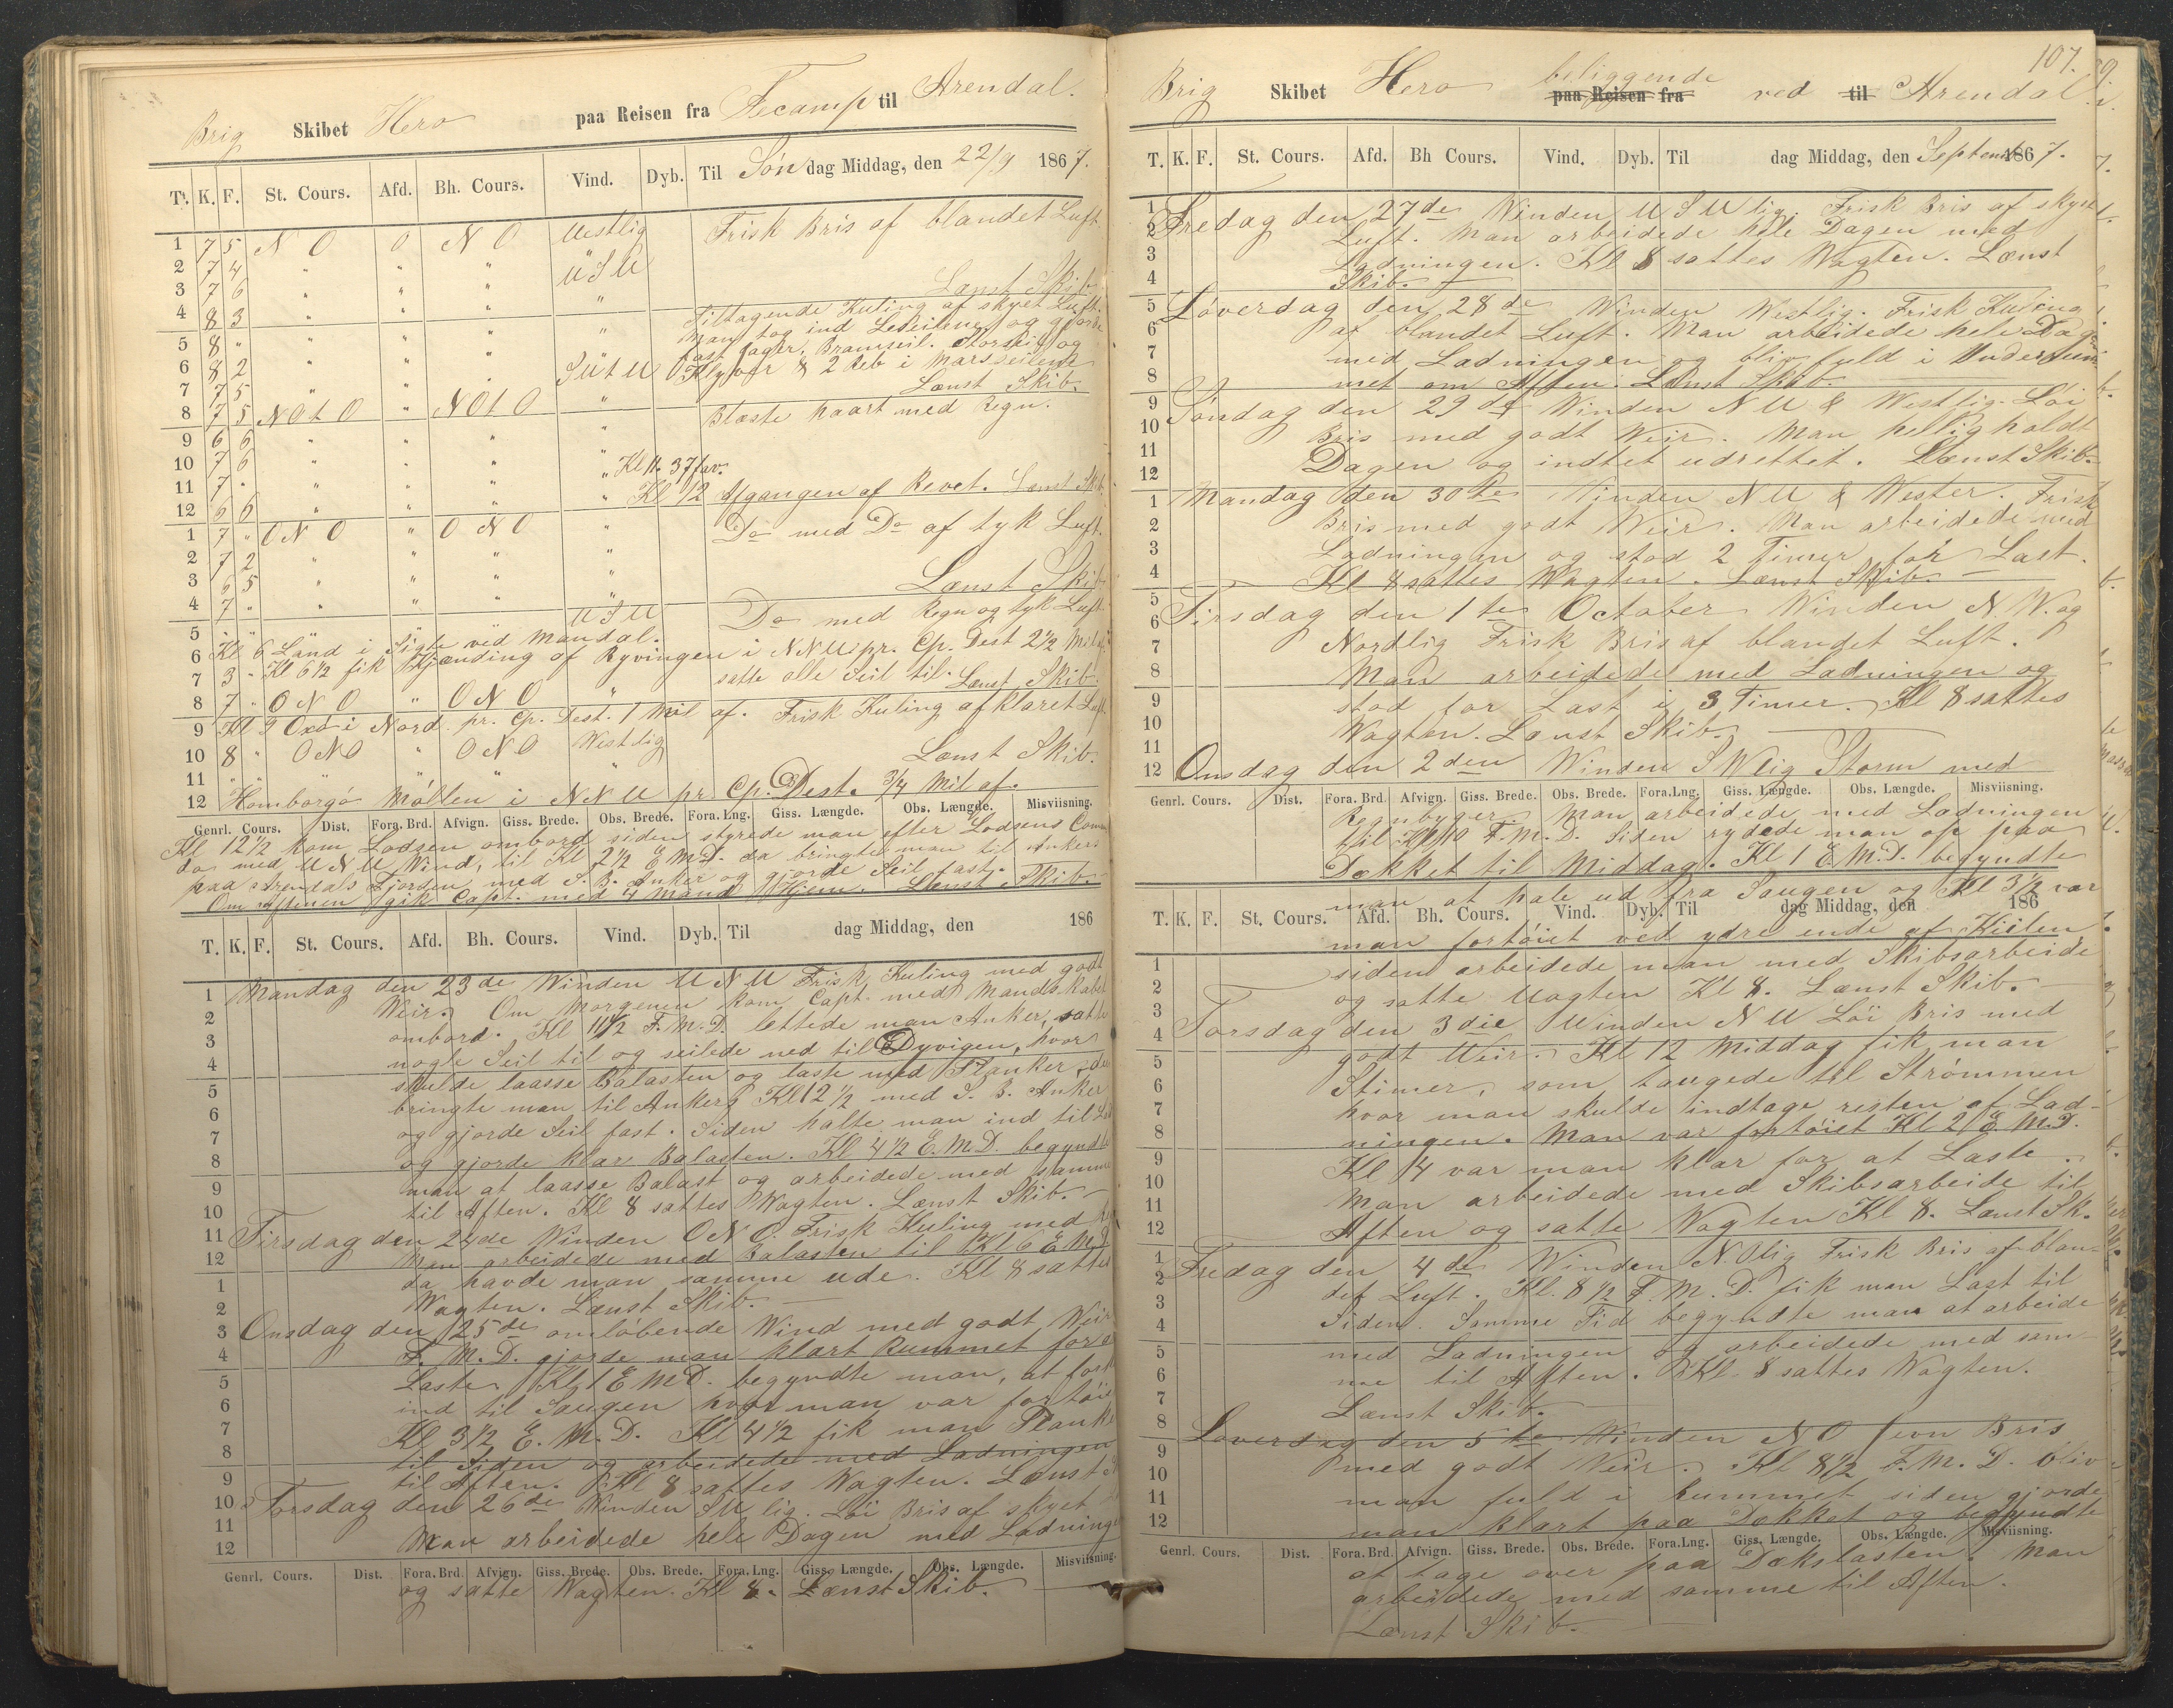 Brig Skibet Hero paa Reisen fra Fecamp til Arendal.
T. K. F. St. Cours. Afd. Bh. Cours. Vind. Dyb. Til Søndag Middag, den 22/9 1867.
1 7 5 N O 0 N O Westlig Frisk Bris af blandet Luft.
2 7 4 " " " W S W
3 7 6 " " " " Lænst Skib.
4 8 3 " " " " Tiltagende Kuling af skyet Luft.
Man tog ind Læseilene og gjorde
5 8 " " " " " fast Jager, Bramseil. Storseil og
6 8 2 " " " S W t W Klyver & 2 Reb i Marsseilene
7 7 5 " " " " Lænst Skib.
8 7 5 N O t O " N O t O " Blæste haart med Regn.
9 6 6 " " " "
10 7 6 " " " " Kl 11. 37 fav.
11 7 " " " " " Kl 12 Afgangen af Revet. Lænst Skib.
12 6 6 " " " "
1 7 " O N O " O N O " Do med Do af tyk Luft.
2 7 2 " " " "
3 6 5 " " " " Lænst Skib
4 7 " " " " W S W Do med Regn og tyk Luft.
5 " "
6 Kl 6 Land i Sigte ved Mandal.
7 3 " Kl 6 1/2 fik Kjending af Ryvingen i N N W pr. Cp. Dest 2 1/2 Mil af
satte alle Seil til. Lænst Skib.
8 7 " O N O " O N O "
9 Kl 9 Oxö i Nord. pr. Cp. Dest. 1 Mil af. Frisk Kuling af klaret Luft.
10 8 " O N O " O N O Westlig Lænst Skib.
11 " " " " " "
12 Homborgö Möllen i N N W pr Cp. Dest. 3/4 Mil af.
Genrl. Cours. Dist. Fora. Brd. Afvign. Giss. Brede. Obs. Brede. Fora. Lng. Giss. Længde. Obs. Længde. Misviisning.
Kl 12 1/2 kom Lodsen ombord siden styrede man efter Lodsens Comm
do med W N W Wind, til Kl 2 1/2 E M.D. da bringte man til Ankers
paa Arendals Fjorden med S. B. Anker og gjorde Seil fast.
Om aftenen gik Capt. med 4 Mand Hjem. Lænst Skib.
T. K. F. St. Cours. Afd. Bh. Cours. Vind. Dyb. Til dag Middag, den 186
1 Mandag den 23de Winden W N W Frisk Kuling med godt
2 Weir. Om Morgenen kom Capt. med Mandskabet
3 ombord. Kl 11 1/2 F. M. D. lettede man Anker, satte
4 nogle Seil til og seilede ned til Dyvigen, hvor
skulde laasse Balasten og laste med Planker, der
5 bringte man til Ankers Kl 12 1/2 med S. B. Anker
6 og gjorde Seil fast. Siden halte man ind til
7 og gjorde klar Balasten. Kl 4 1/2 E. M. D. begyndte
8 man at laasse Balast og arbeidede med samme
9 til Aften. Kl 8 sattes Wagten. Lænst Skib.
10
11 Tirsdag den 24de Winden O N O. Frisk Kuling med
12 Man arbeidede med Balasten til Kl 6 E M D
1 da havde man samme ude. Kl 8 sattes
2 Wagten. Lænst Skib.
3 Onsdag den 25de omløbende Wind med godt Weir
4 F. M. D. gjorde man klart Rummet for at
5 Laste. Kl 1 E M D. begyndte man, at
6 ind til Saugen hvor man var fortöiet
7 Kl 3 1/2 E. M. D. Kl 4 1/2 fik man Planker
8 til Siden og arbeidede med Ladningen
9 til Aften. Kl 8 sattes Wagten. Lænst
10 Torsdag den 26de Winden S W lig. Löi Bris af skyet
11 Man arbeidede hele Dagen med Ladningen
12
Genrl. Cours. Dist. Fora. Brd. Afvign. Giss. Brede. Obs. Brede. Fora. Lng. Giss. Længde. Obs. Længde. Misviisning.
og satte Wagten Kl 8. Lænst Skib.
107.
Brig Skibet Hero beliggende paa Reisen fra ved til Arendal.
T. K. F. St. Cours. Afd. Bh Cours. Vind. Dyb. Til dag Middag, den September 1867.
1 Fredag den 27de Winden W S W lig. Frisk Bris af skyet
2 Luft. Man arbeidede hele Dagen med
3 Ladningen. Kl 8 sattes Wagten. Lænst
4 Skib.
5 Løverdag den 28de Winden Westlig. Frisk Kuling
6 af blandet Luft. Man arbeidede hele Dagen
7 med Ladningen og bliv fuld i Underrum-
8 met om Aften. Lænst Skib.
9 Søndag den 29de Winden N W & Westlig. Löi
10 Bris med godt Weir. Man helligholdt
11 Dagen og indtet udrettet. Lænst Skib.
12
1 Mandag den 30te Winden N W & Wester. Frisk
2 Bris med godt Weir. Man arbeidede med
3 Ladningen og stod 2 Timer for Last.
4 Kl 8 sattes Wagten. Lænst Skib.
5 Tirsdag den 1te October Winden N. W. og
6 Nordlig Frisk Bris af blandet Luft.
7
8 Man arbeidede med Ladningen og
9 stod for Last i 3 Timer. Kl 8 sattes
10 Wagten. Lænst Skib.
11
12 Onsdag den 2den Winden S W lig Storm med
Genrl. Cours. Dist. Fora. Brd. Afvign. Giss. Brede. Obs. Brede. Fora. Lng. Giss. Længde. Obs. Længde. Misviisning.
Regnbyger. Man arbeidede med Ladningen
til Kl 10 F. M. D. Siden rydede man op paa
Dækket til Middag. Kl 1 E. M. D. begyndte
man at hale ud fra Saugen og Kl 3 1/2 var
T. K. F. St. Cours. Afd. Bh. Cours. Vind. Dyb. Til dag Middag, den 186
man fortöiet ved ydre ende af Kiilen,
1 siden arbeidede man med Skibsarbeide
2 og satte Wagten Kl 8. Lænst Skib.
3
4 Torsdag den 3die Winden N W Löi Bris med
5 godt Weir. Kl 12 Middag fik man
6 Stimer, som taugede til Strömmen
7 hvor man skulde indtage resten af Lad-
8 ningen. Man var fortöiet Kl 2 E. M. D.
9 Kl 4 var man klar for at Laste.
10 Man arbeidede med Skibsarbeide til
11
12 Aften og satte Wagten Kl 8. Lænst Sk.
1 Fredag den 4de Winden N. O lig Frisk Bris af blan-
2 det Luft. Kl. 8 1/2 F. M. D. fik man Last til
3 Siden. Samme Tid begyndte man at arbeide
4
5 med Ladningen og arbeidede med sam-
6 me til Aften. Kl 8 sattes Wagten.
7 Lænst Skib.
8 Løverdag den 5te Winden N O Jevn Bris
9 med godt Weir. Kl 8 1/2 F. M. D. bliv
10
11 man fuld i Rummet siden gjorde
12 man klart paa Dækket og begyndte
Genrl. Cours. Dist. Fora. Brd. Afvign. Giss. Brede. Obs. Brede. Fora. Lng. Giss. Længde. Obs. Længde. Misviisning.
at tage over paa Dækslasten. Man
arbeidede med samme til Aften.
Lænst Skib.